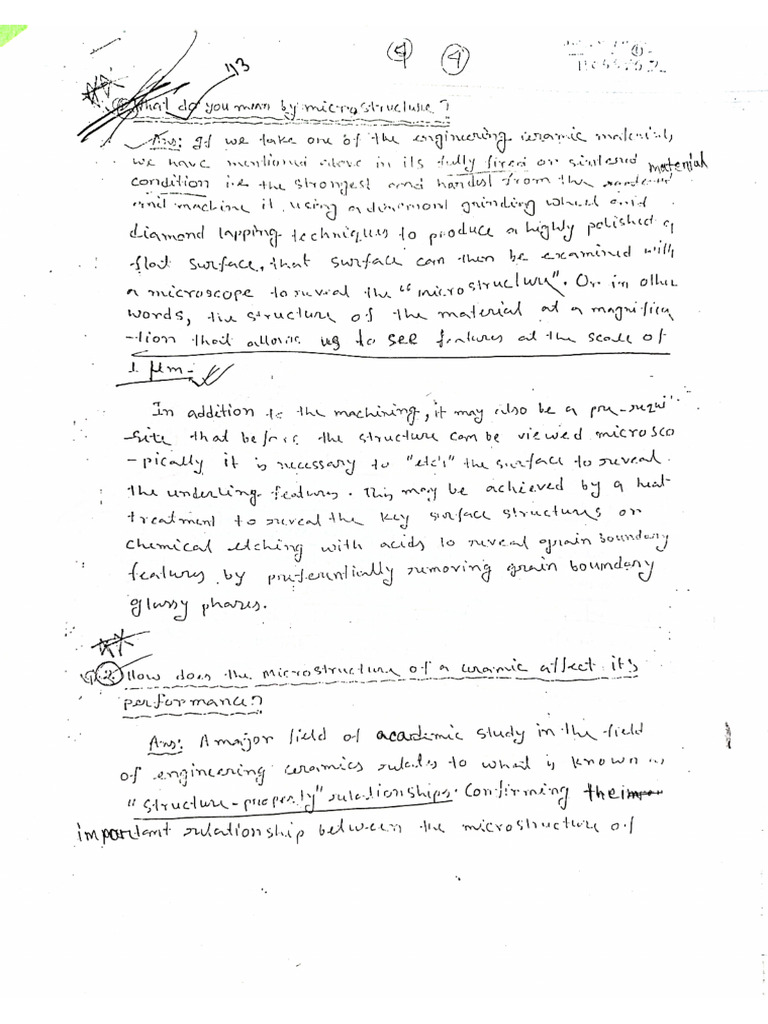 4 4
113
What do you mean by microstructure?
Ans: If we take one of the engineering ceramic materials
we have mentioned above in its fully fired or sintered material
condition i.e the strongest and hardest from the
and machine it using a diamond grinding wheel and
diamond lapping techniques to produce a highly polished
flat surface, that surface can then be examined with
a microscope to reveal the "microstructure". Or in other
words, the structure of the material at a magnifica
-tion that allows us to see features at the scale of
1 μm.
In addition to the machining, it may also be a pre-requi
-site that before the structure can be viewed microsco
-pically it is necessary to "etch" the surface to reveal
the underling features. This may be achieved by a heat
treatment to reveal the key surface structures or
chemical etching with acids to reveal grain boundary
features by preferentially removing grain boundary
glassy phases.
Q.2. How does the microstructure of a ceramic affect its
performance?
Ans: A major field of academic study in the field
of engineering ceramics relates to what is known as
"structure-property" relationships. Confirming the
important relationship between the microstructure of